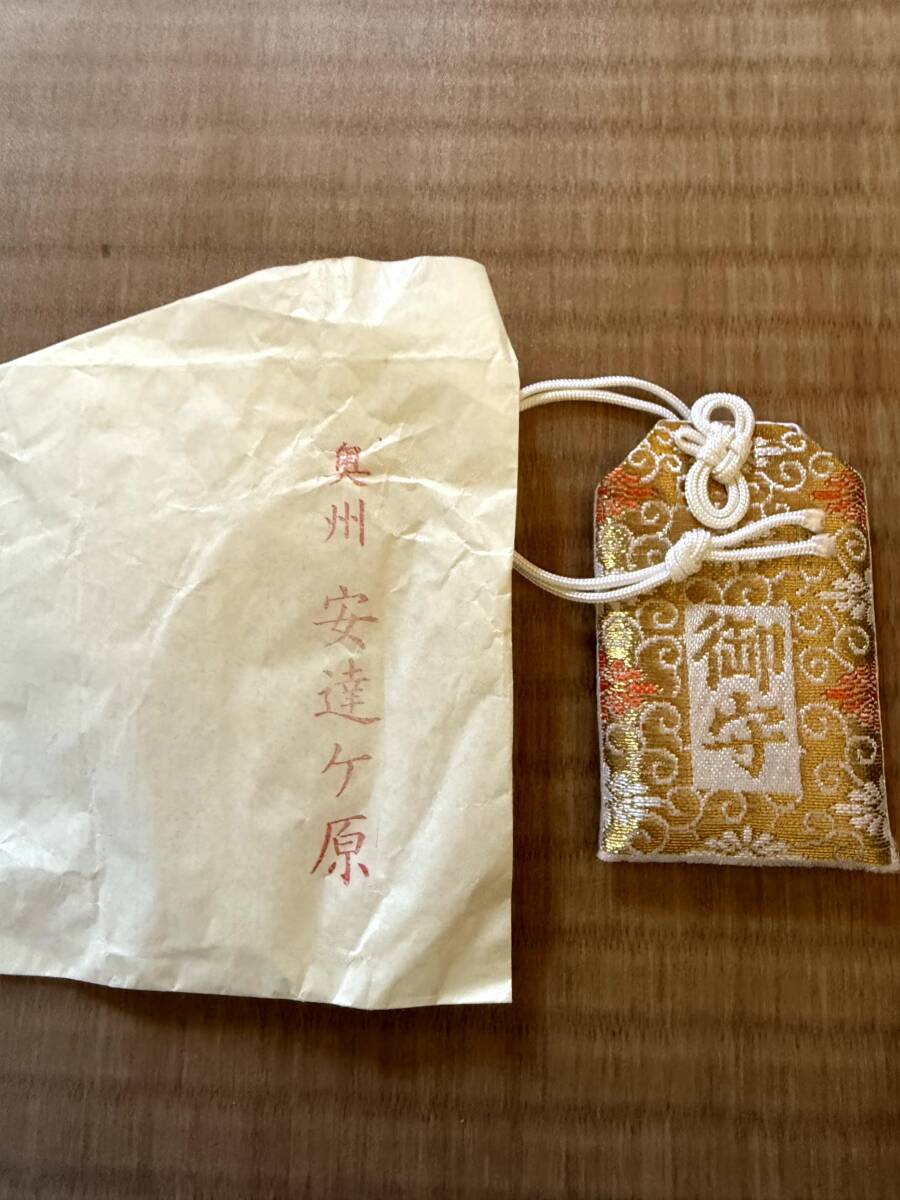 奥州 安達ケ原
御守